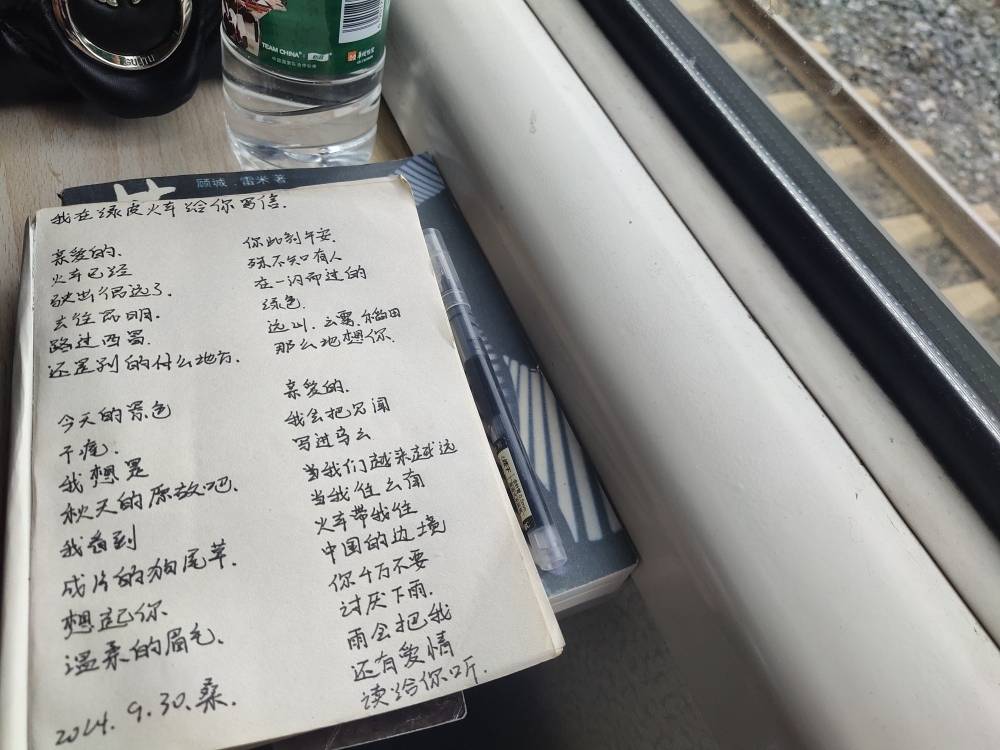 TEAM CHINA
顾诚 . 雷米 著
我在绿皮火车给你写信.
亲爱的.
火车已经
驶出很远了.
去往昆明.
路过西蜀.
还是别的什么地方.
今天的景色
干瘪.
我想是
秋天的原故吧.
我看到
成片的狗尾草.
想起你
温柔的眉毛.
你此刻午安.
殊不知有人
在一闪而过的
绿色.
远山.云雾.稻田
那么地想你.
亲爱的.
我会把见闻
写进乌云
当我们越来越远
当我往云南
火车带我往
中国的边境
你千万不要
讨厌下雨.
雨会把我
还有爱情
读给你听.
2024.9.30.桑.